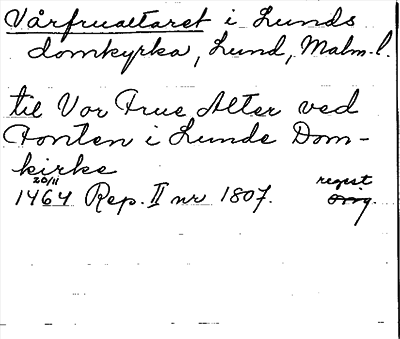 Vårfrualtaret i Lunds
domkyrka, Lund, Malm. l.
til Vor Frue Alter ved
Fonten i Lunde Dom-
kirke
20/11
1464 Rep. II nr 1807.
regest
orig.